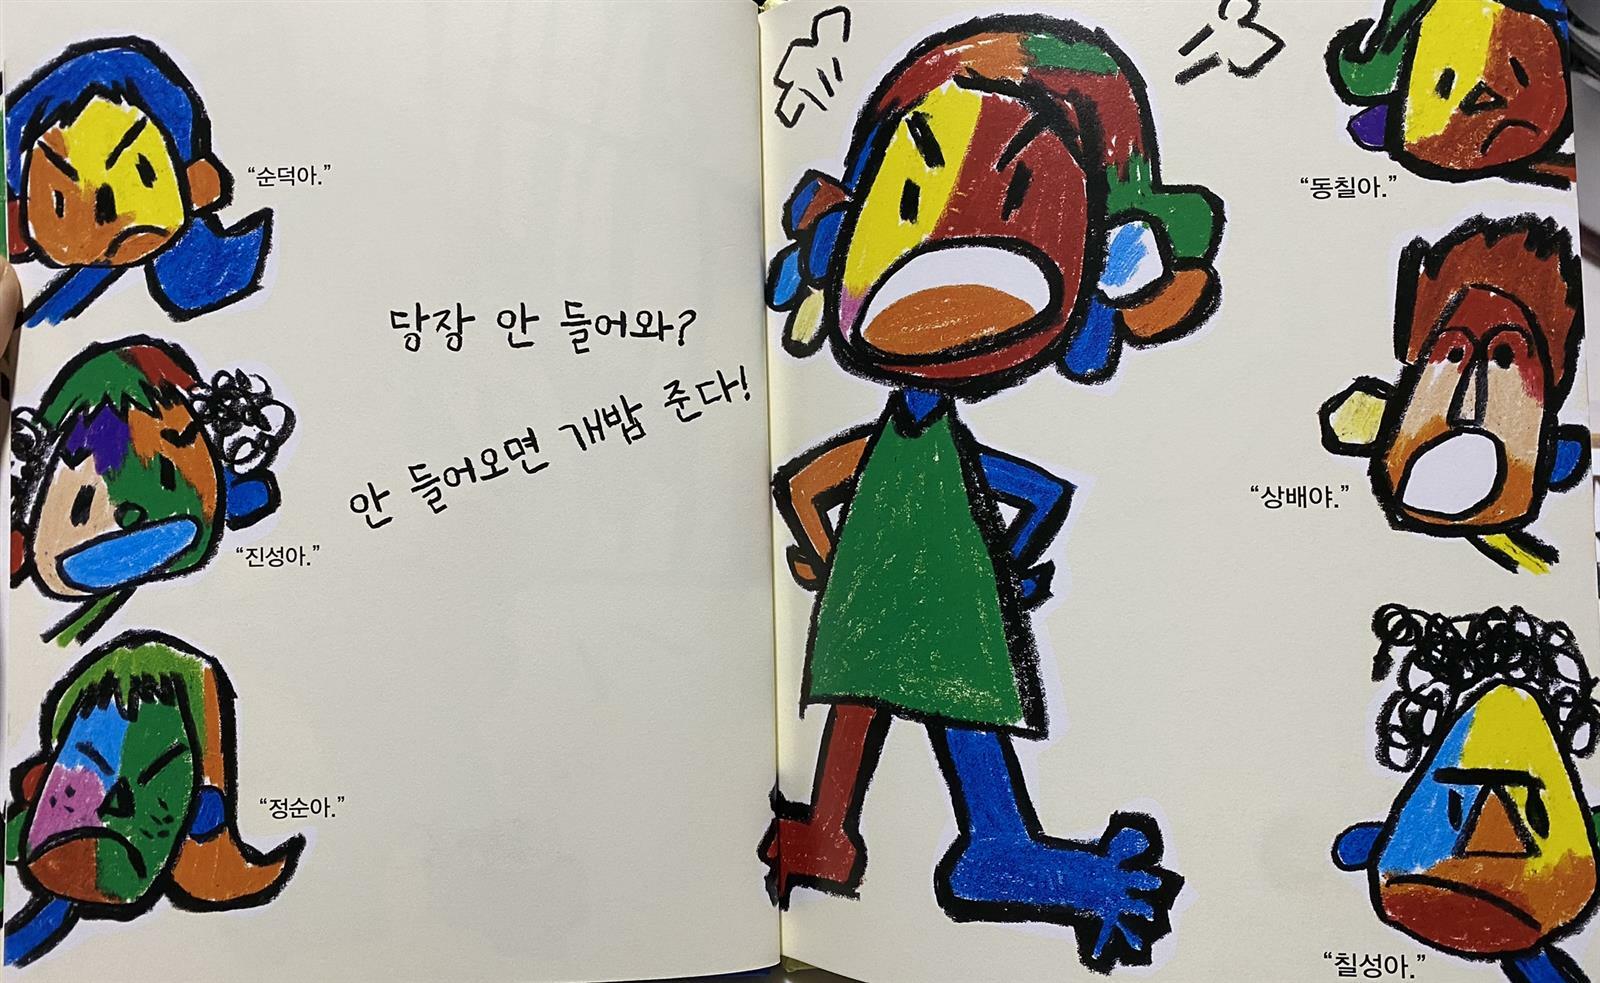 “순덕아.”
당장 안 들어와?
안 들어오면 개밥 준다!
“진성아.”
“정순아.”
“동칠아.”
“상배야.”
“칠성아.”